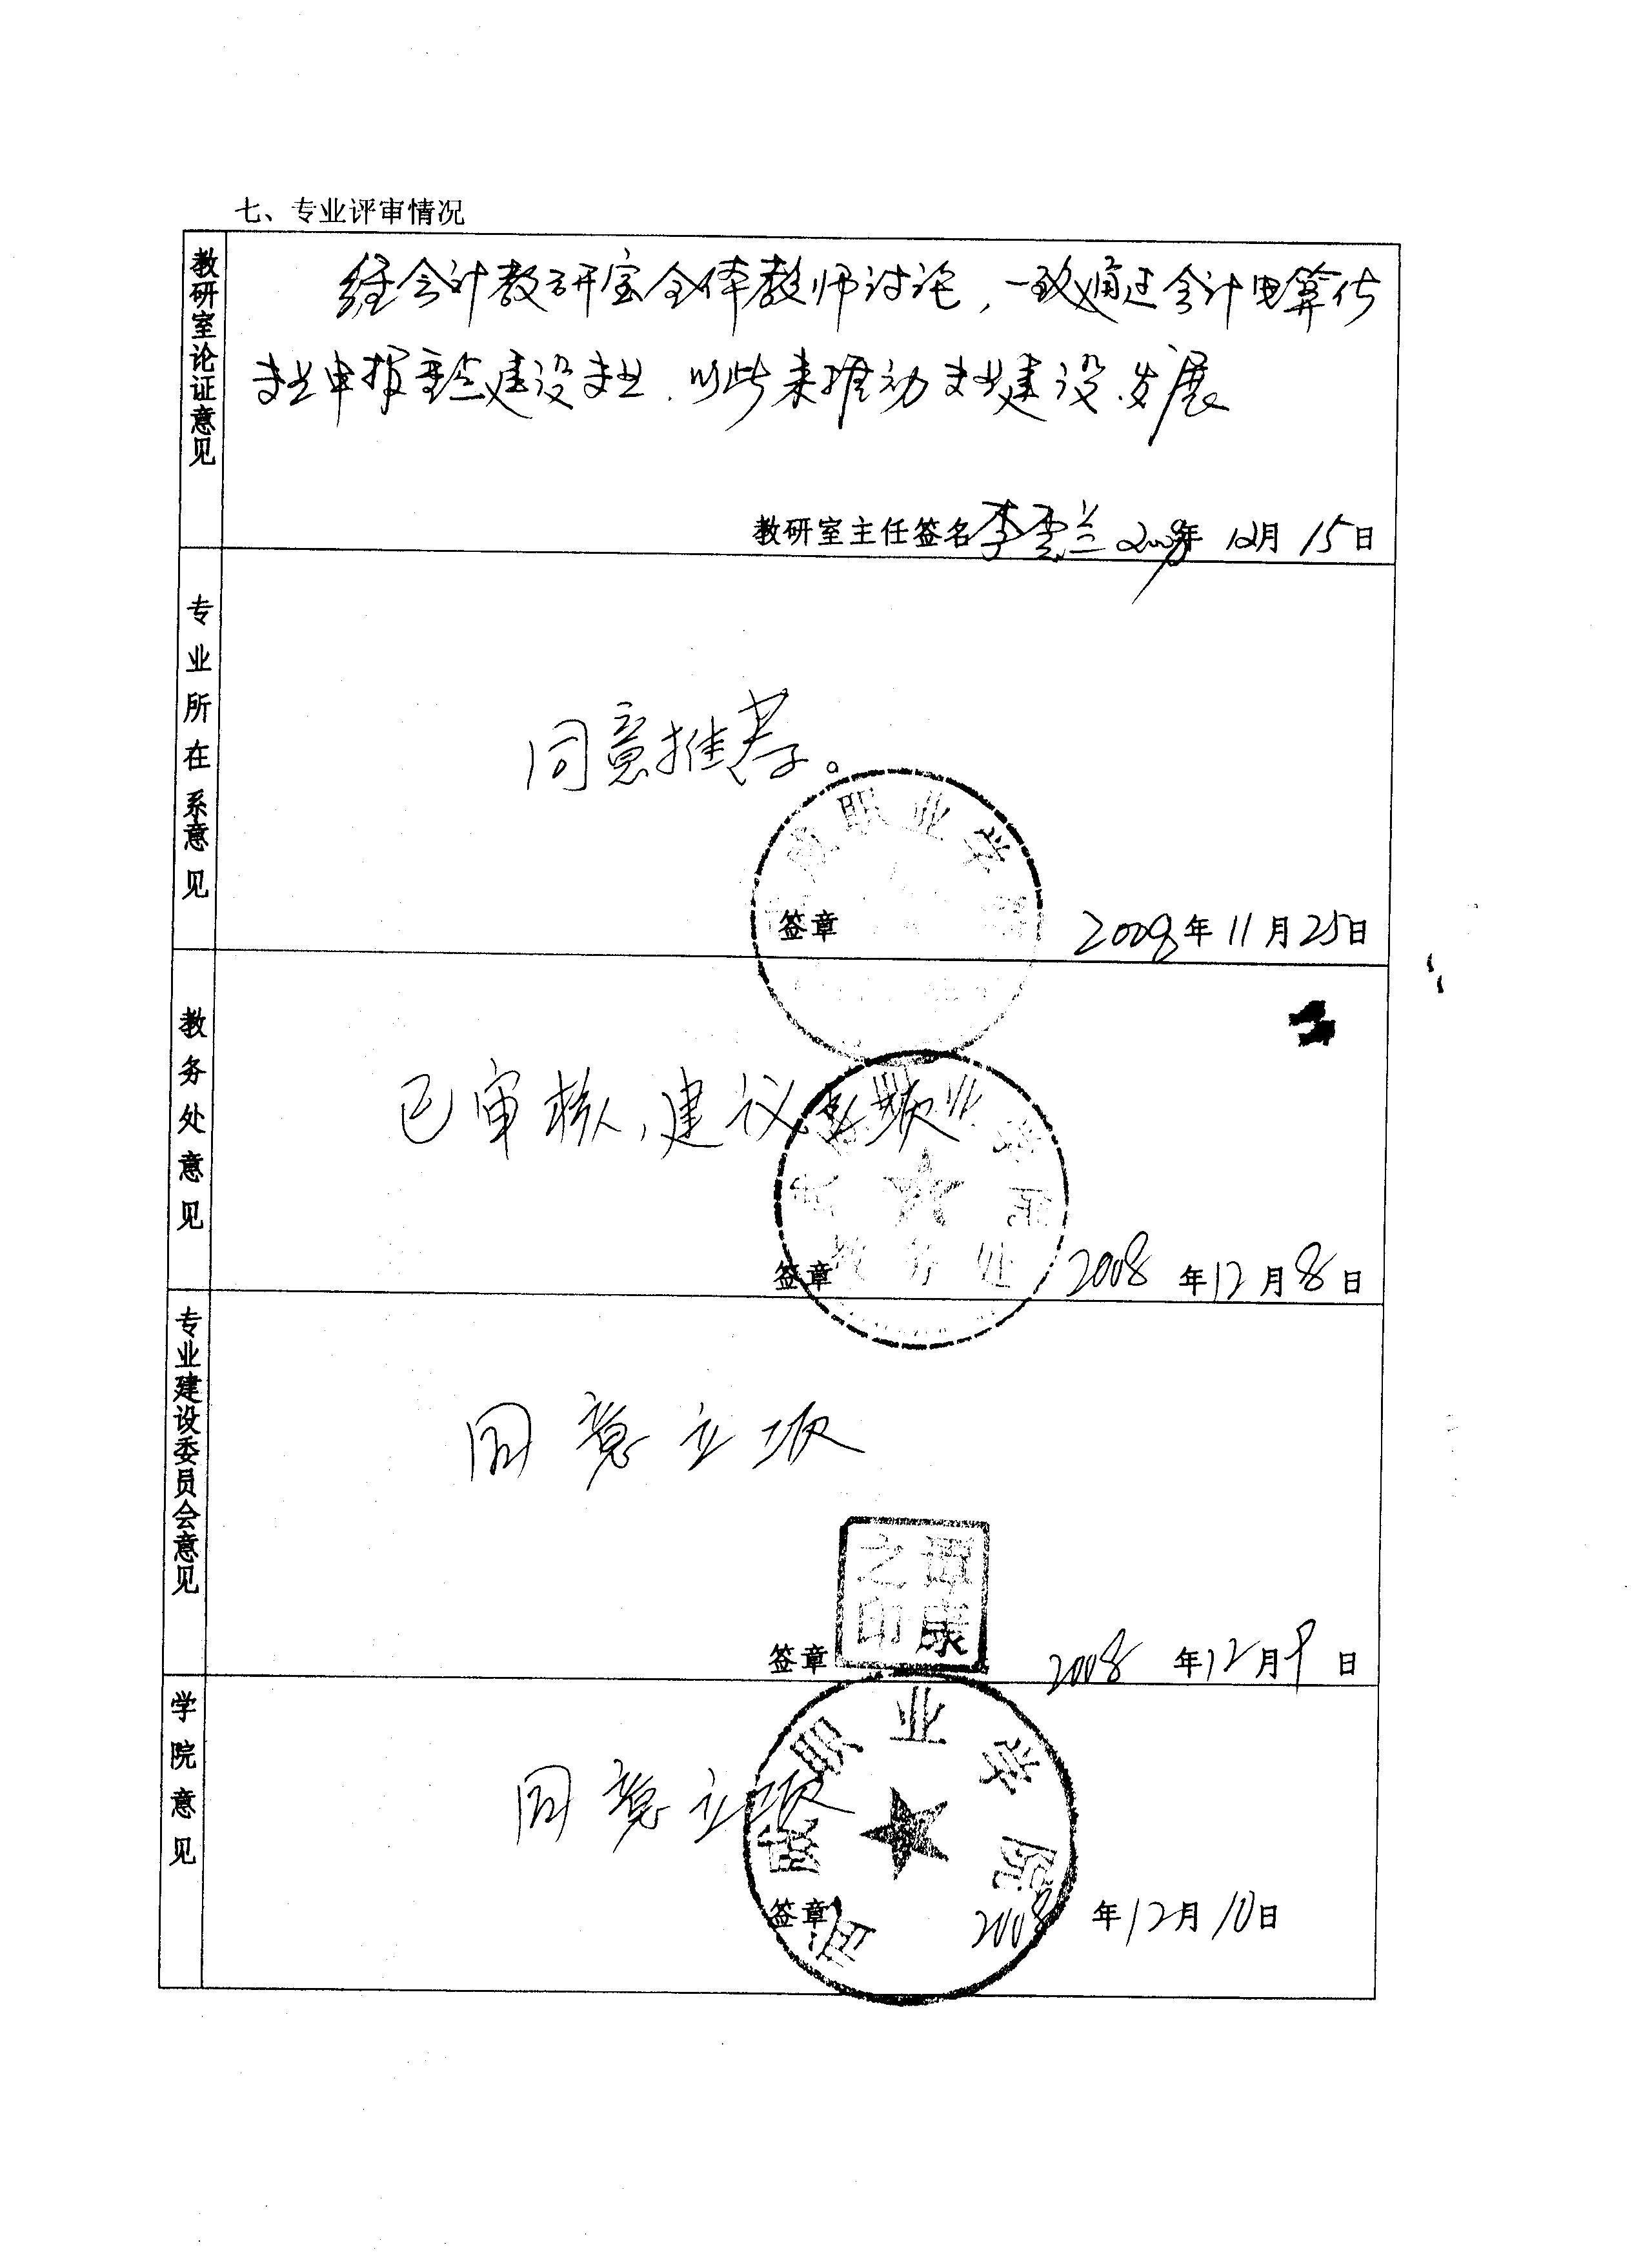 七、专业评审情况
教研室论证意见
经会计教研室全体教师讨论，一致通过会计电算化
专业申报重点建设专业，以此来推动专业建设、发展
教研室主任签名 李雪兰 2008年 12月 15日
专业所在系意见
同意推荐。
职业学
签章 2008年11月25日
教务处意见
已审核，建议立项
职业学院
教务处
签章 2008年12月8日
专业建设委员会意见
同意立项
康
之印
签章 2008年12月9日
学院意见
同意立项
职业学院
签章 2008年12月10日